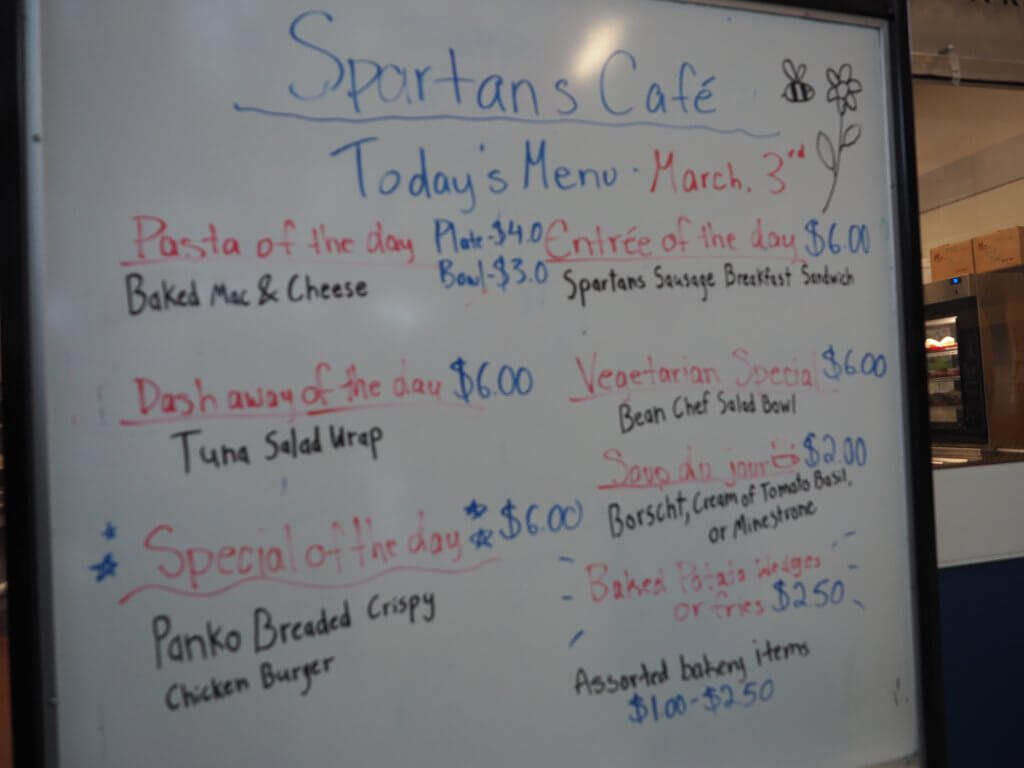 Spartans Café
Today's Menu - March. 3rd
Pasta of the day Plate-$4.0
Bowl-$3.0
Baked Mac & Cheese
Entrée of the day $6.00
Spartans Sausage Breakfast Sandwich
Dash away of the day $6.00
Tuna Salad Wrap
Vegetarian Special $6.00
Bean Chef Salad Bowl
Soup du jour $2.00
Borscht, Cream of Tomato Basil,
or Minestrone
Special of the day $6.00
Panko Breaded Crispy
Chicken Burger
Baked Potato Wedges
or fries $2.50
Assorted bakery items
$1.00-$2.50